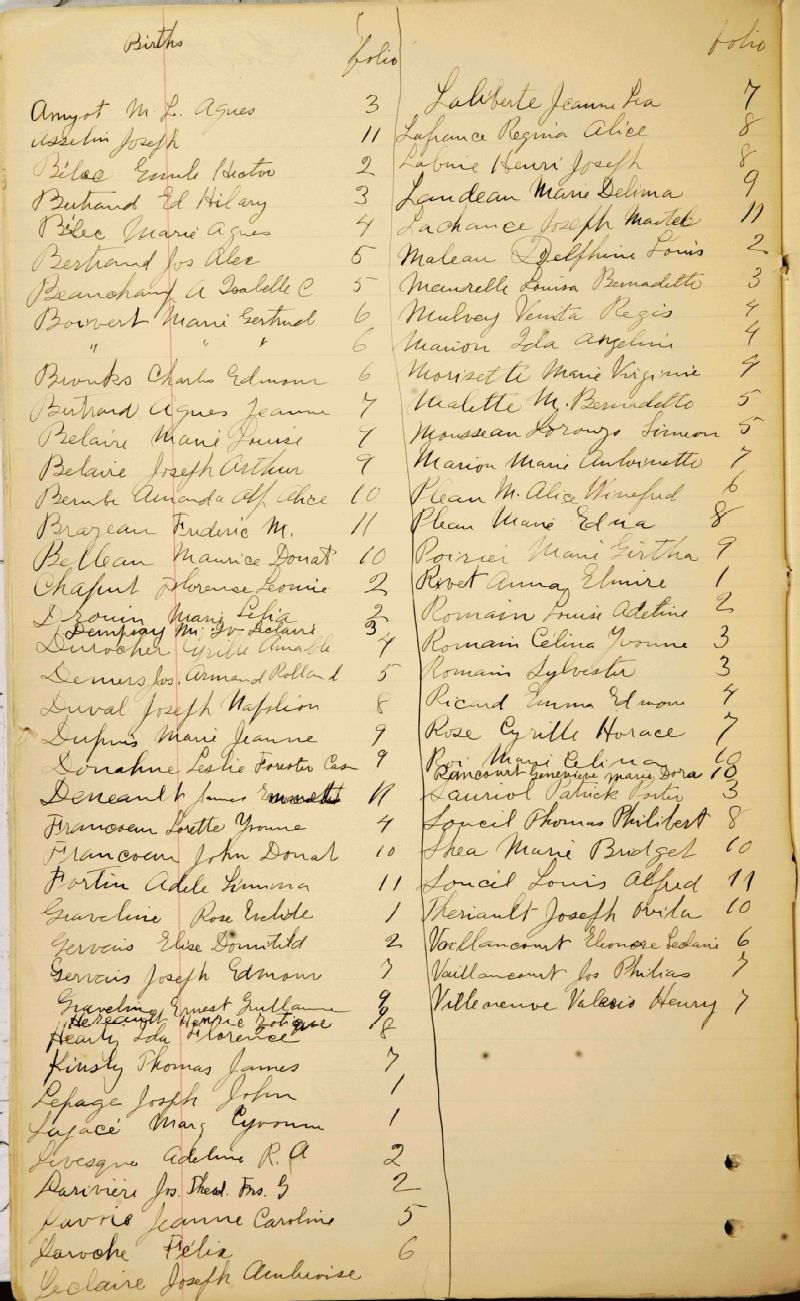 Births folio
Amyot M. L. Agnes 3
Asselin Joseph 11
Bélec Emile Hector 2
Bertrand Ed Hilary 3
Bélec Marie Agnes 4
Bertrand Jos Alec 5
Beauchamp A Isabelle C 5
Boisvert Marie Gertrud 6
" " " 6
Charles Edmour 6
Bertrand Agnes Jeanne 7
Belaire Marie Louise 9
Belaire Joseph Arthur 9
Berube Amanda Alf Alice 10
Brazeau Frederic M. 11
Belleau Maurice Donat 10
Chaput Florense Leonie 2
Drouin Marie Lelia 2
Dempsay M. Leclaire 3
Durocher Cyrille Amable 4
Demers Jos. Armand Rolland 5
Duval Joseph Napolion 8
Dupuis Marie Jeanne 9
Donahue Leslie Forester Casn 9
Deneault James 11
Francoeur Lorette Yvonne 4
Francoeur John Donat 10
Fortin Adele 11
Graveline Rose 1
Gervais Elise Domitild 2
Gervais Joseph Edmour 7
Graveline Ernest Guillaume 9
Henrie 9
Hearty Ida Florence 8
Kinsly Thomas James 7
Lepage Joseph John 1
Lajacé Marg Cyvonne 1
Livesque Adeline R. A 2
Larivière Jos. Thed. Frs. G 2
Lavoie Jeanne Caroline 5
Laroche Félix 6
Leclaire Joseph Ambroise
folio
Laliberte Jeanne Lea 7
Lafrance Regina Alice 8
Labrie Henri Joseph 8
Landeau Marie Delima 9
Lachance Joseph Martel 11
Maleau Delphine Louis 2
Maurelle Louisa Bernadette 3
Mulvey Venita Regis 4
Marion Ida Angeline 4
Morisette Marie Virginie 9
Malette M. Bernadette 5
Mousseau Lorenzo Simeon 5
Marion Marie Antoinette 7
Plean M. Alice Winefred 6
Plean Marie Edna 8
Poirier Marie Girtha 9
Rivet Anna Elmire 1
Romain Louise Adeline 2
Romain Célina Yvonne 3
Romain Sylvester 3
Ricard Emma Edmour 4
Rose Cyrille Horace 7
Roi Marie Celina 10
Rancourt Genevieve Marie Dora 10
Sauriol Patrick Porter 3
Soucil Thomas Philibert 8
Shea Marie Bridget 10
Soucil Louis Alfred 11
Theriault Joseph Ovila 10
Vaillancourt Eleonore Leclaire 6
Vaillancourt Jos Philias 7
Villeneuve Henry 7